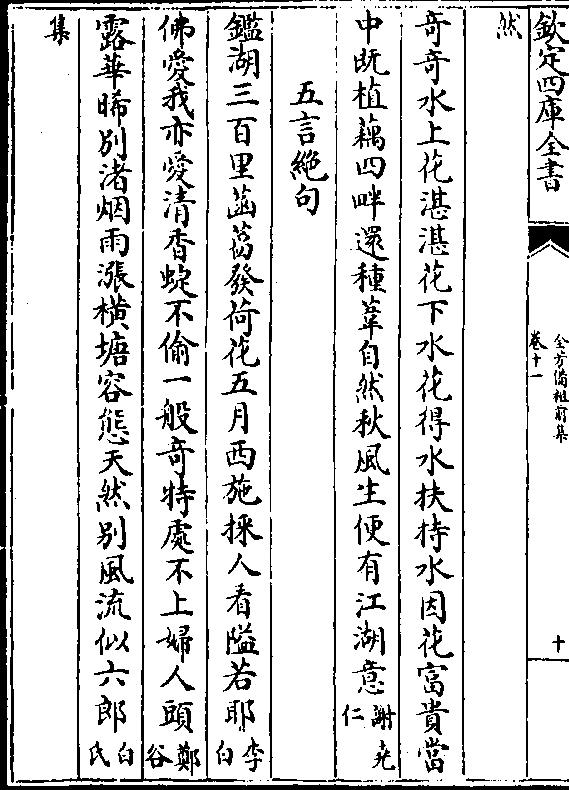 欽定四庫全書
全芳備祖前集
卷十一
十
然
奇奇水上花湛湛花下水花得水扶持水因花富貴當
中既植藕四畔還種葦自然秋風生便有江湖意謝堯仁
五言絶句
鑑湖三百里菡萏發荷花五月西施採人看隘若耶李白
佛愛我亦愛清香蜨不偷一般奇特處不上婦人頭鄭谷
露華晞別渚烟雨漲横塘容態天然别風流似六郎白氏
集